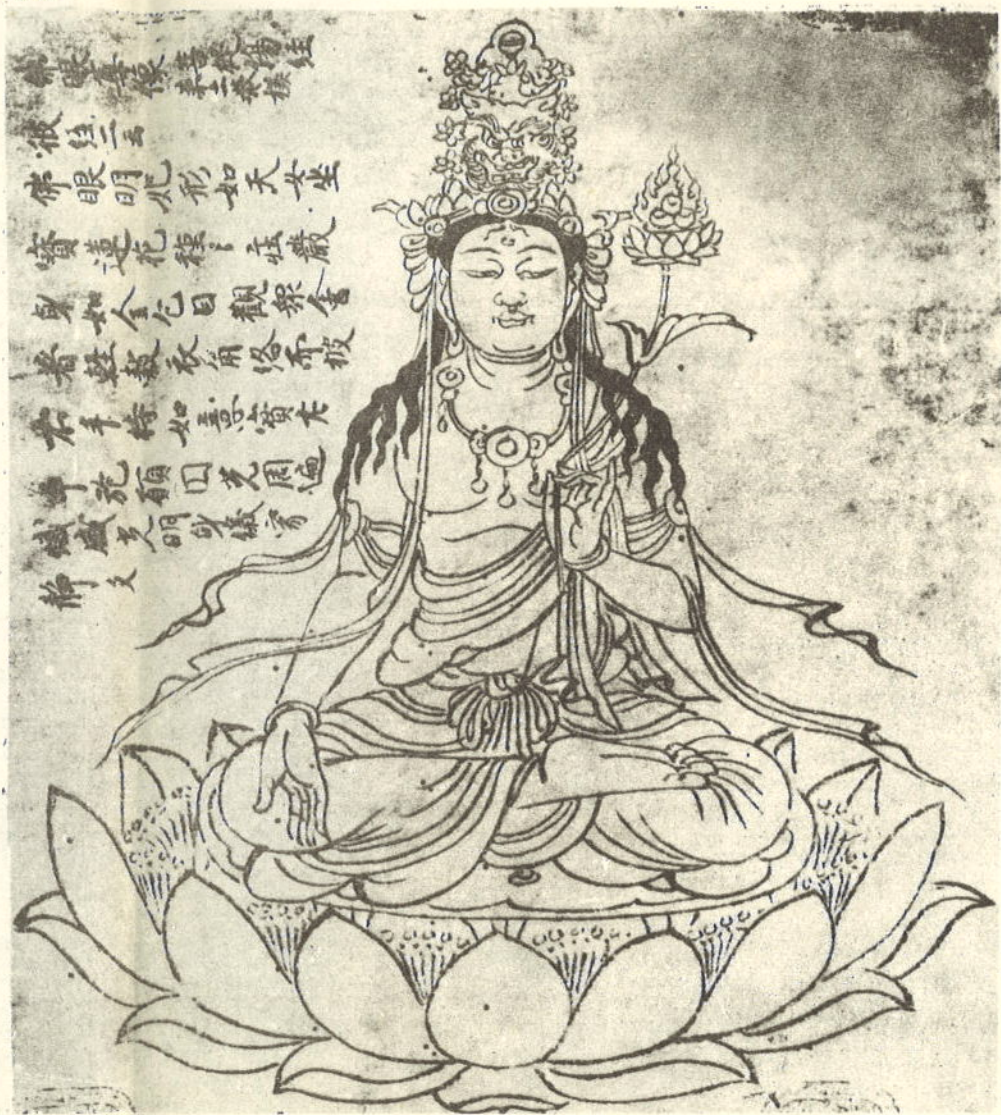 佛眼尊像
彼経云
佛眼明妃形如天女坐
寶蓮花種々荘嚴
身如金色目觀衆會
着輕縠衣角絡而被
右手持如意寶左
手施願円光周遍
熾盛光明身儀寂
静文